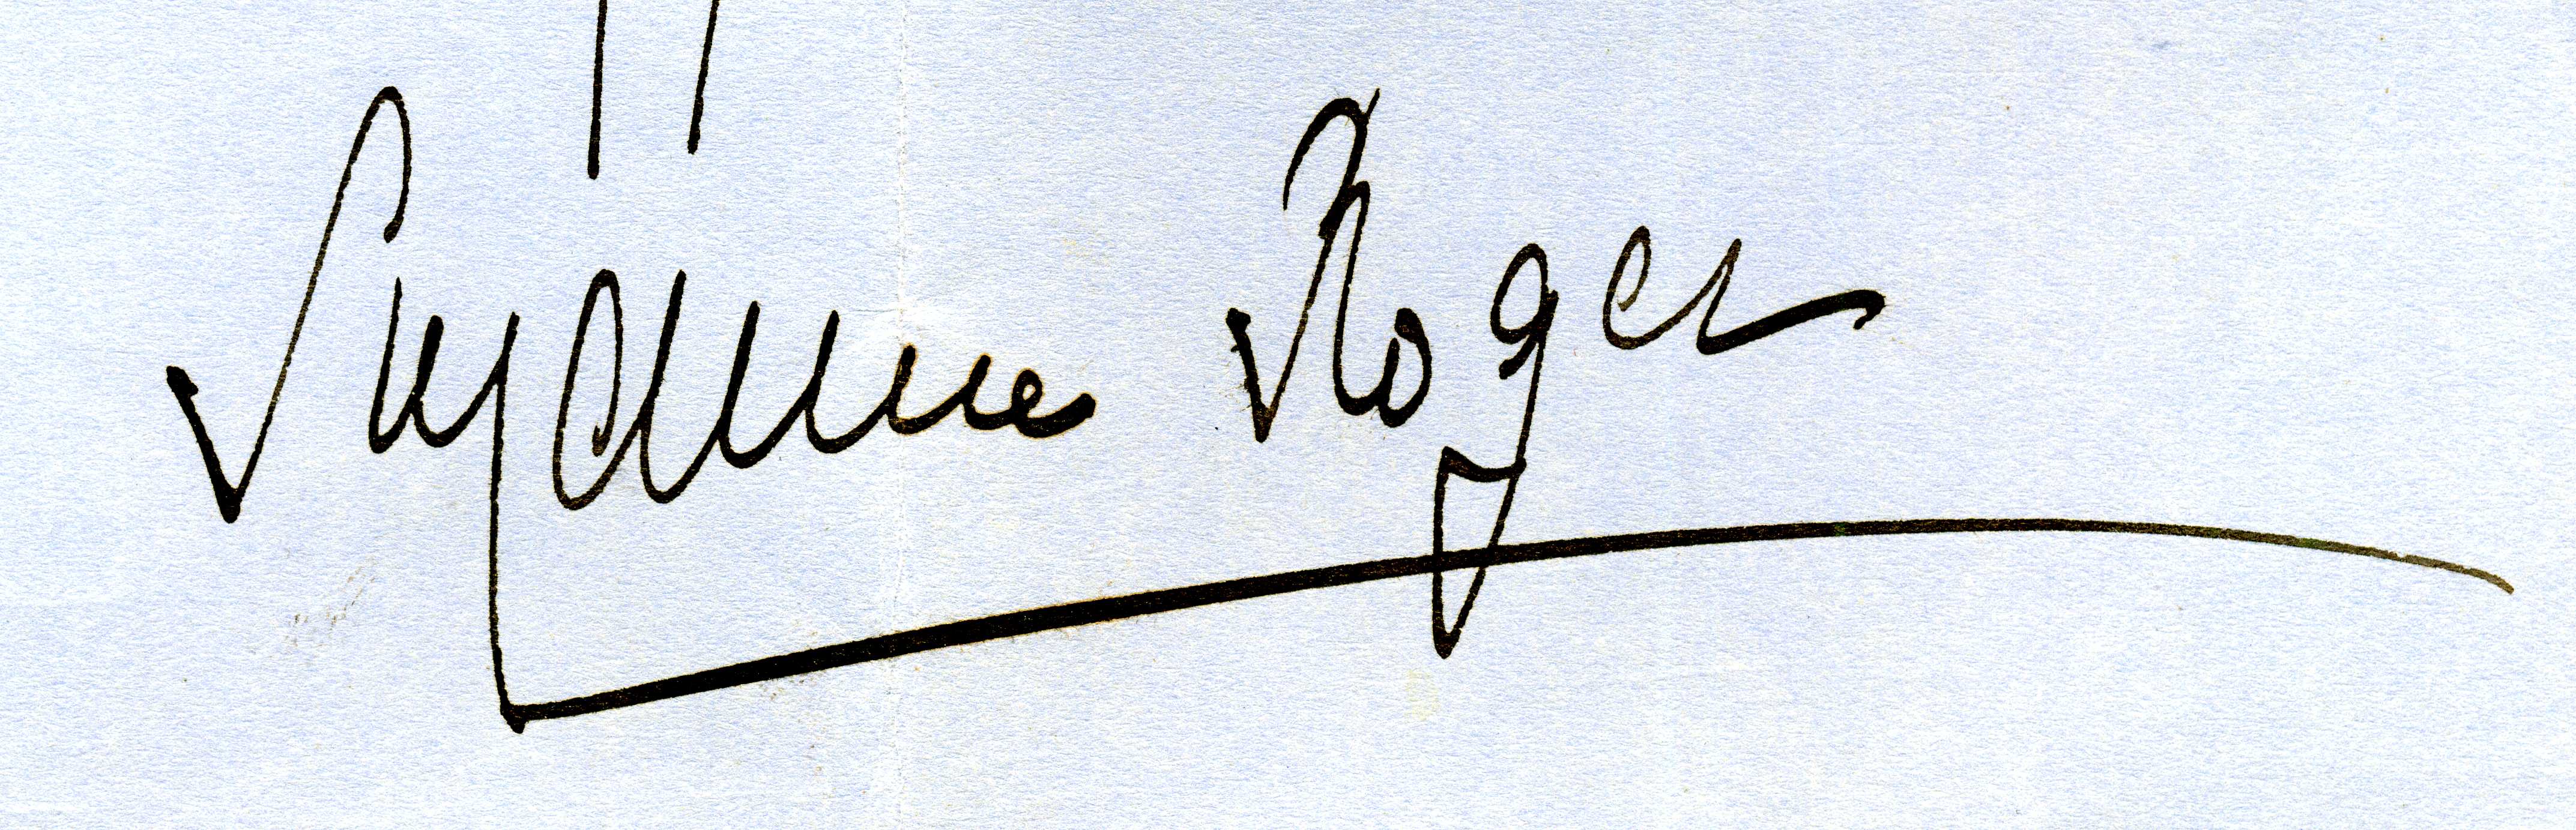 Suzanne Roger